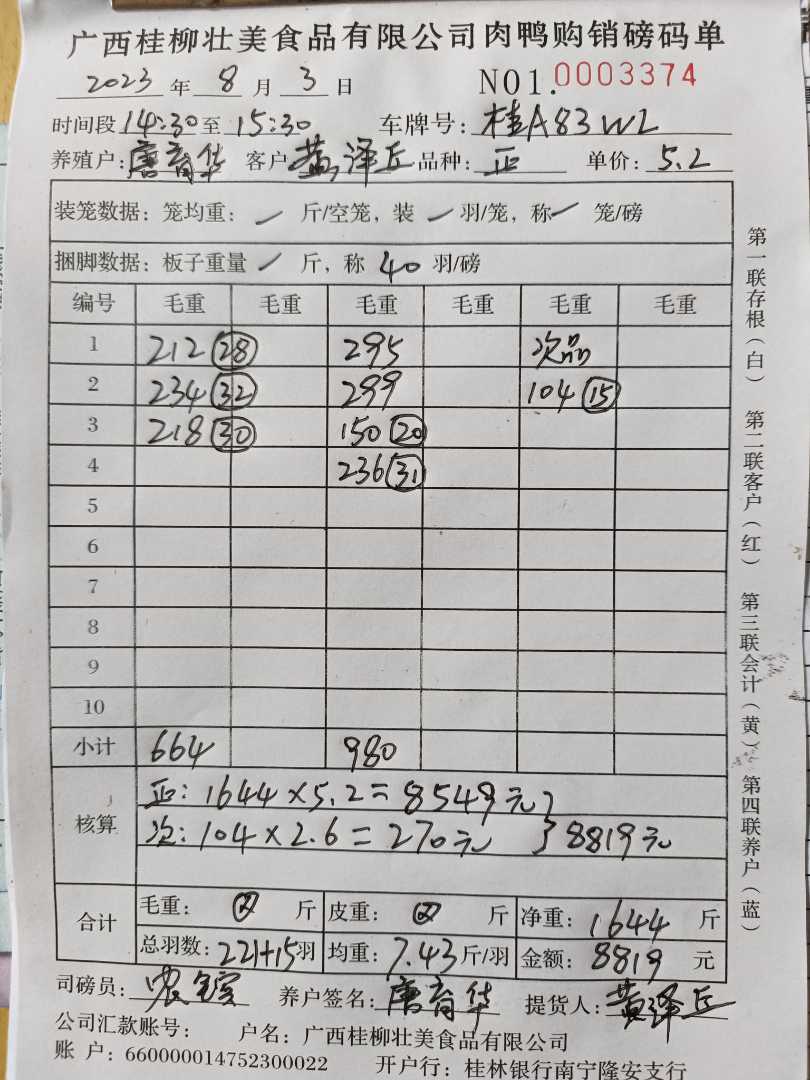 广西桂柳壮美食品有限公司肉鸭购销磅码单
2023 年 8 月 3 日 NO1.0003374
时间段 14:30 至 15:30 车牌号: 桂A83W2
养殖户: 唐育华 客户 黄泽丘 品种: 正 单价: 5.2
装笼数据: 笼均重: 斤/空笼, 装 羽/笼, 称 笼/磅
捆脚数据: 板子重量 斤, 称 40 羽/磅
编号 毛重 毛重 毛重 毛重 毛重 毛重
1 212 28 295 次品
2 234 32 299 104 15
3 218 30 150 20
4 236 31
5
6
7
8
9
10
小计 664 980
核算 正: 1644×5.2=8549元
次: 104×2.6=270元 } 8819元
合计 毛重: 斤 皮重: 斤 净重: 1644 斤
总羽数: 221+15羽 均重: 7.43斤/羽 金额: 8819 元
司磅员: 养户签名: 唐育华 提货人: 黄泽丘
公司汇款账号: 户名: 广西桂柳壮美食品有限公司
账 户: 660000014752300022 开户行: 桂林银行南宁隆安支行
第一联存根(白) 第二联客户(红) 第三联会计(黄) 第四联养户(蓝)